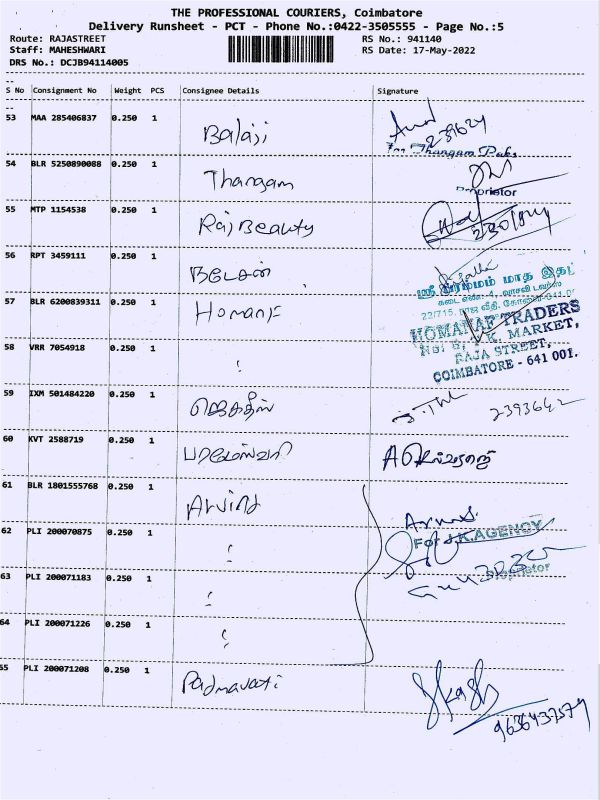 THE PROFESSIONAL COURIERS, Coimbatore
Delivery Runsheet - PCT - Phone No.:0422-3505555 - Page No.:5
Route: RAJASTREET
RS No.: 941140
Staff: MAHESHWARI
RS Date: 17-May-2022
DRS No.: DCJB94114005
S No Consignment No Weight PCS Consignee Details Signature
53 MAA 285406837 0.250 1 Balaji
for Thangam Paks
54 BLR 5250890088 0.250 1 Thangam
Proprietor
55 MTP 1154538 0.250 1 Raj Beauty
56 RPT 3459111 0.250 1
57 BLR 6200839311 0.250 1 Homanf
HOMANAF TRADERS
No: 6, P.K. MARKET,
RAJA STREET,
COIMBATORE - 641 001.
58 VRR 7054918 0.250 1
59 IXM 501484220 0.250 1 ஜெகதீஸ் 2393642
60 KVT 2588719 0.250 1
61 BLR 1801555768 0.250 1 Arvind
For J.K.AGENCY
62 PLI 200070875 0.250 1
Proprietor
63 PLI 200071183 0.250 1
64 PLI 200071226 0.250 1
65 PLI 200071208 0.250 1 Padmavati
9636437579